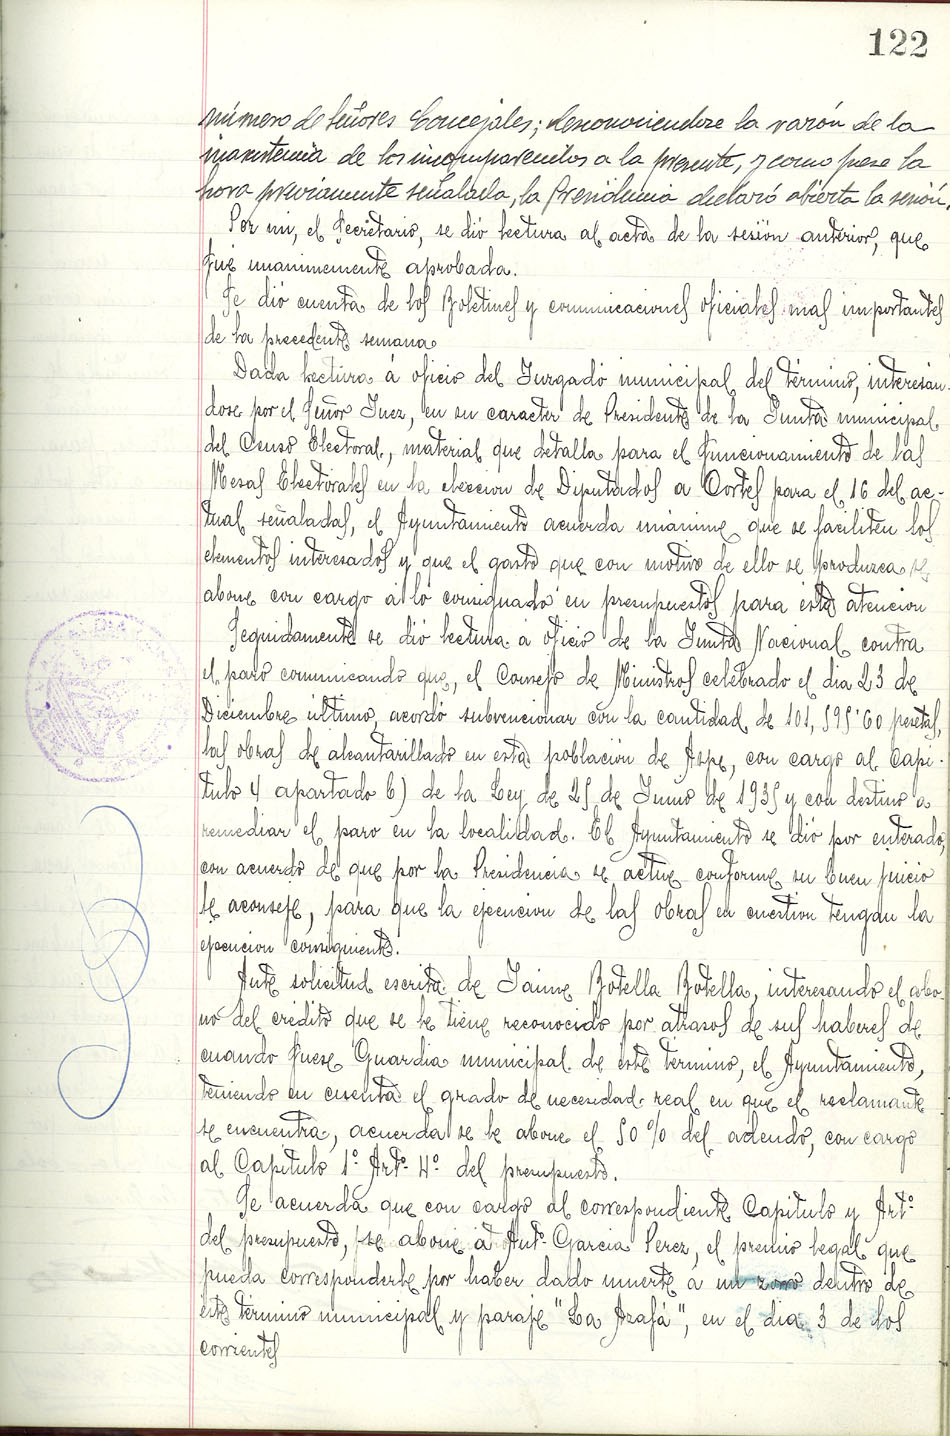 122
número de Señores Concejales; desconociendose la razón de la
inasistencia de los incomparecidos a la presente, y como pase la
hora previamente señalada, la Presidencia declaró abierta la sesión.
Por mi, el Secretario, se dió lectura al acta de la sesión anterior, que
fué unanimemente aprobada.
Se dió cuenta de los Boletines y comunicaciones oficiales mas importantes
de la precedente semana.
Dada lectura á oficio del Juzgado municipal del término, interesan-
dose por el Señor Juez, en su caracter de Presidente de la Junta municipal
del Censo Electoral, material que detalla para el funcionamiento de las
Mesas Electorales en la eleccion de Diputados a Cortes para el 16 del ac-
tual señaladas, el Ayuntamiento acuerda unánime que se faciliten los
elementos interesados y que el gasto que con motivo de ello se produzca se
abone con cargo a lo consignado en presupuestos para esta atencion
Seguidamente se dió lectura á oficio de la Junta Nacional contra
el paro comunicando que, el Consejo de Ministros celebrado el dia 23 de
Diciembre último, acordó subvencionar con la cantidad de 101,595'60 pesetas,
las obras de alcantarillado en esta población de Aspe, con cargo al Capi-
tulo 4 apartado b) de la Ley de 25 de Junio de 1935 y con destino a
remediar el paro en la localidad. El Ayuntamiento se dió por enterado,
con acuerdo de que por la Presidencia se actue conforme su buen juicio
le aconseje, para que la ejecucion de las obras en cuestion tengan la
ejecucion consiguiente.
Ante solicitud escrita de Jaime Botella Botella, interesando el abo-
no del crédito que se le tiene reconocido por atrasos de sus haberes de
cuando fuese Guardia municipal de este término, el Ayuntamiento,
teniendo en cuenta el grado de necesidad real en que el reclamante
se encuentra, acuerda se le abone el 50% del adeudo, con cargo
al Capitulo 1º Artº 4º del presupuesto.
Se acuerda que con cargo al correspondiente Capitulo y Artº
del presupuesto, se abone á Antº Garcia Perez, el premio legal que
pueda corresponderle por haber dado muerte á un zorro dentro de
este término municipal y paraje "La Azafá", en el dia 3 de los
corrientes